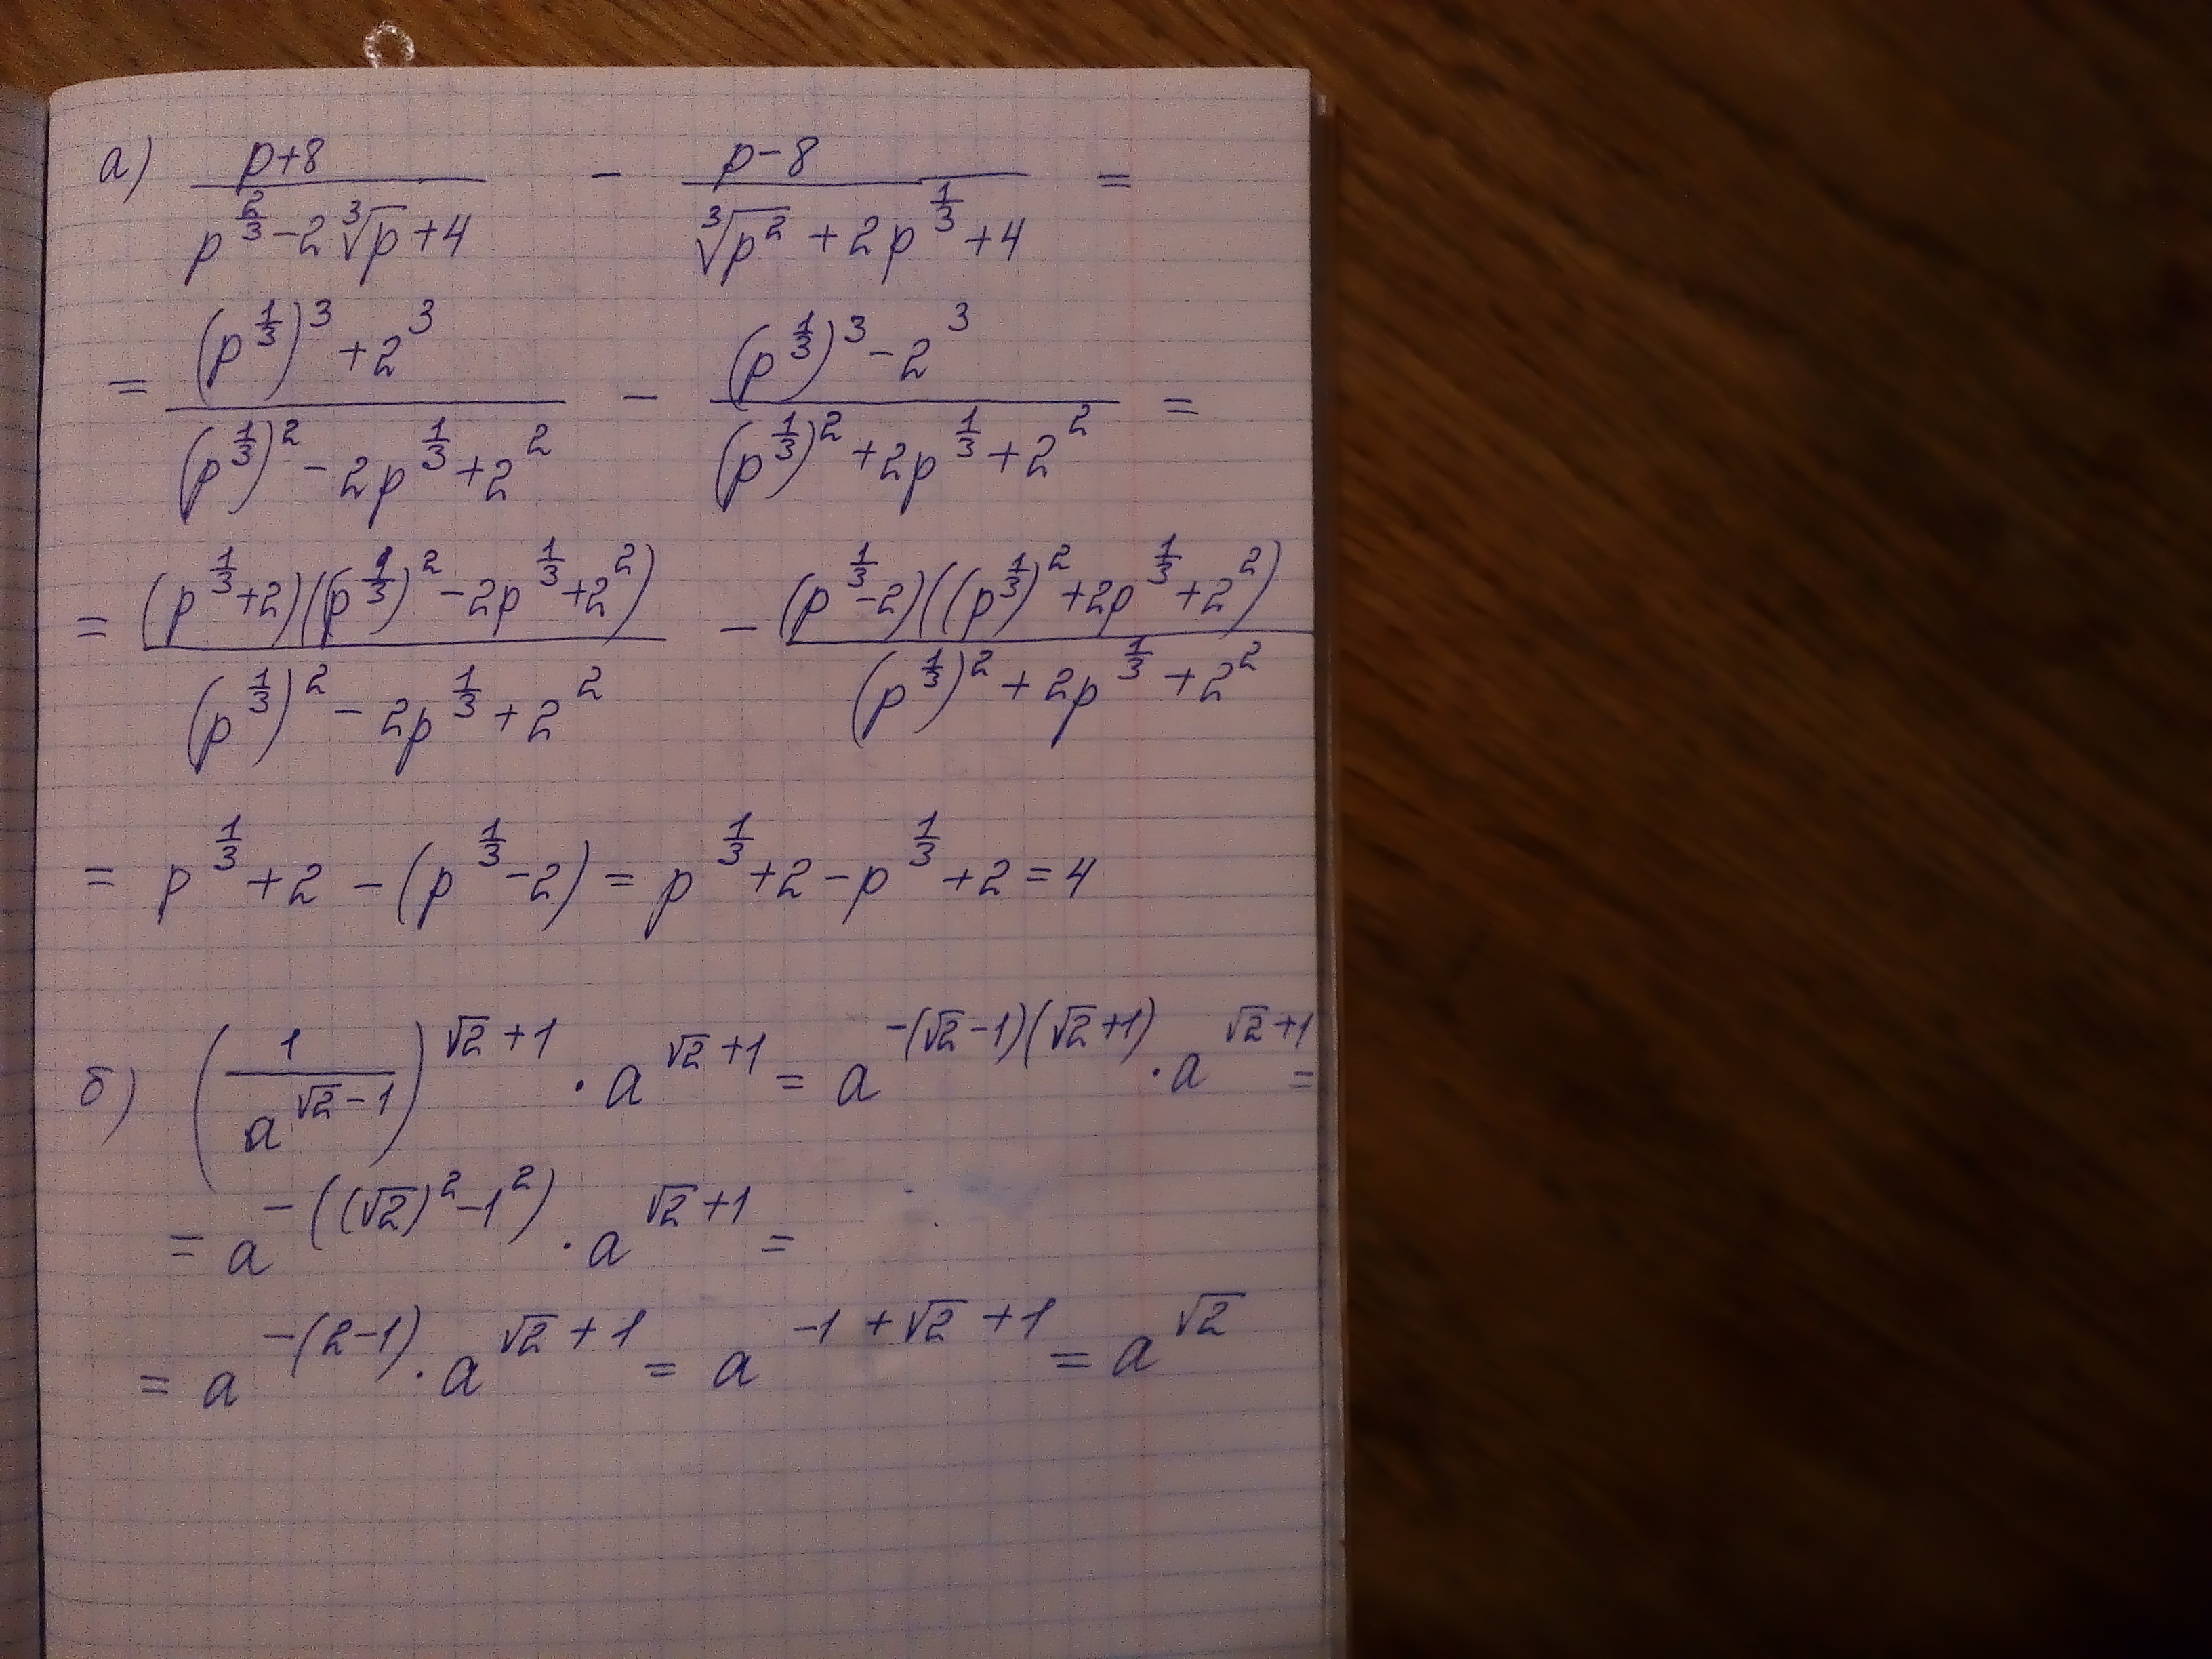 а) \frac{p+8}{p^{\frac{2}{3}}-2\sqrt[3]{p}+4} - \frac{p-8}{\sqrt[3]{p^2}+2p^{\frac{1}{3}}+4} =
= \frac{(p^{\frac{1}{3}})^3+2^3}{(p^{\frac{1}{3}})^2-2p^{\frac{1}{3}}+2^2} - \frac{(p^{\frac{1}{3}})^3-2^3}{(p^{\frac{1}{3}})^2+2p^{\frac{1}{3}}+2^2} =
= \frac{(p^{\frac{1}{3}}+2)((p^{\frac{1}{3}})^2-2p^{\frac{1}{3}}+2^2)}{(p^{\frac{1}{3}})^2-2p^{\frac{1}{3}}+2^2} - \frac{(p^{\frac{1}{3}}-2)((p^{\frac{1}{3}})^2+2p^{\frac{1}{3}}+2^2)}{(p^{\frac{1}{3}})^2+2p^{\frac{1}{3}}+2^2}
= p^{\frac{1}{3}}+2-(p^{\frac{1}{3}}-2) = p^{\frac{1}{3}}+2-p^{\frac{1}{3}}+2=4
б) (\frac{1}{a^{\sqrt{2}-1}})^{\sqrt{2}+1} · a^{\sqrt{2}+1} = a^{-(\sqrt{2}-1)(\sqrt{2}+1)} · a^{\sqrt{2}+1} =
= a^{-((\sqrt{2})^2-1^2)} · a^{\sqrt{2}+1} =
= a^{-(2-1)} · a^{\sqrt{2}+1} = a^{-1+\sqrt{2}+1} = a^{\sqrt{2}}